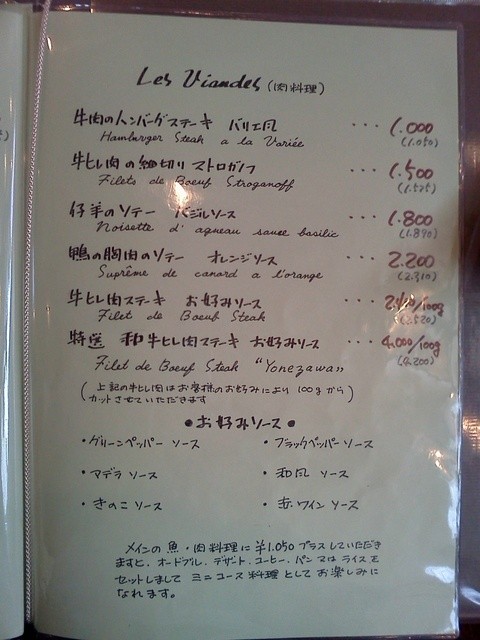 Les Viandes (肉料理)
牛肉のハンバーグステーキ バリエ風 ... 1.000
Hamburger Steak a la Variée (1.050)
牛ヒレ肉の細切り ストロガノフ ... 1.500
Filets de Boeuf Stroganoff (1.525)
仔羊のソテー バジルソース ... 1.800
Noisette d'agneau sauce basilic (1.890)
鴨の胸肉のソテー オレンジソース ... 2.200
Suprême de canard a l'orange (2.310)
牛ヒレ肉ステーキ お好みソース ... 2.400/100g
Filet de Boeuf Steak (2.520)
特選 和牛ヒレ肉ステーキ お好みソース ... 4.000/100g
Filet de Boeuf Steak "Yonezawa" (4.200)
(上記の牛ヒレ肉はお客様のお好みにより 100gから
カットさせていただきます)
●お好みソース●
・グリーンペッパー ソース ・ブラックペッパー ソース
・マデラ ソース ・和風 ソース
・きのこ ソース ・赤ワイン ソース
メインの魚・肉料理に ¥1.050 プラスしていただき
ますと、オードブル、デザート、コーヒー、パン又はライスを
セットしまして ミニコース料理として お楽しみに
なれます。